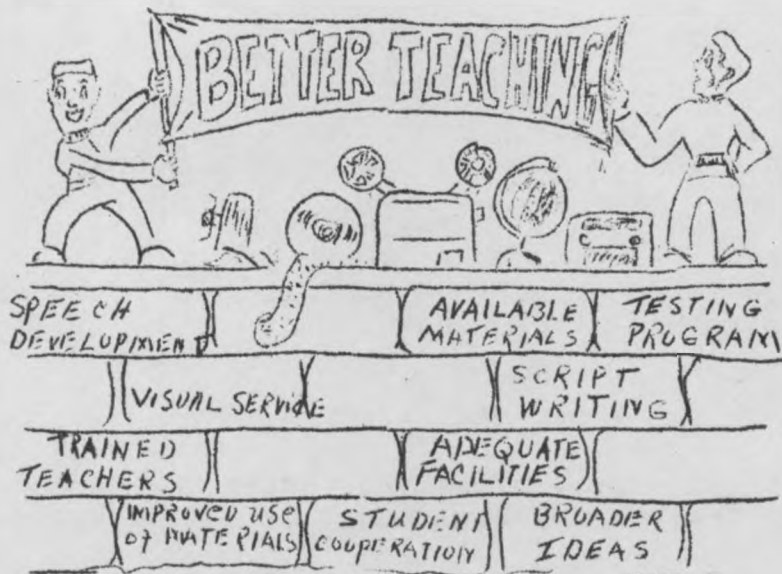 BETTER TEACHING
SPEECH
DEVELOPMENT
AVAILABLE
MATERIALS
TESTING
PROGRAM
VISUAL SERVICE
SCRIPT
WRITING
TRAINED
TEACHERS
ADEQUATE
FACILITIES
IMPROVED USE
OF MATERIALS
STUDENT
COOPERATION
BROADER
IDEAS